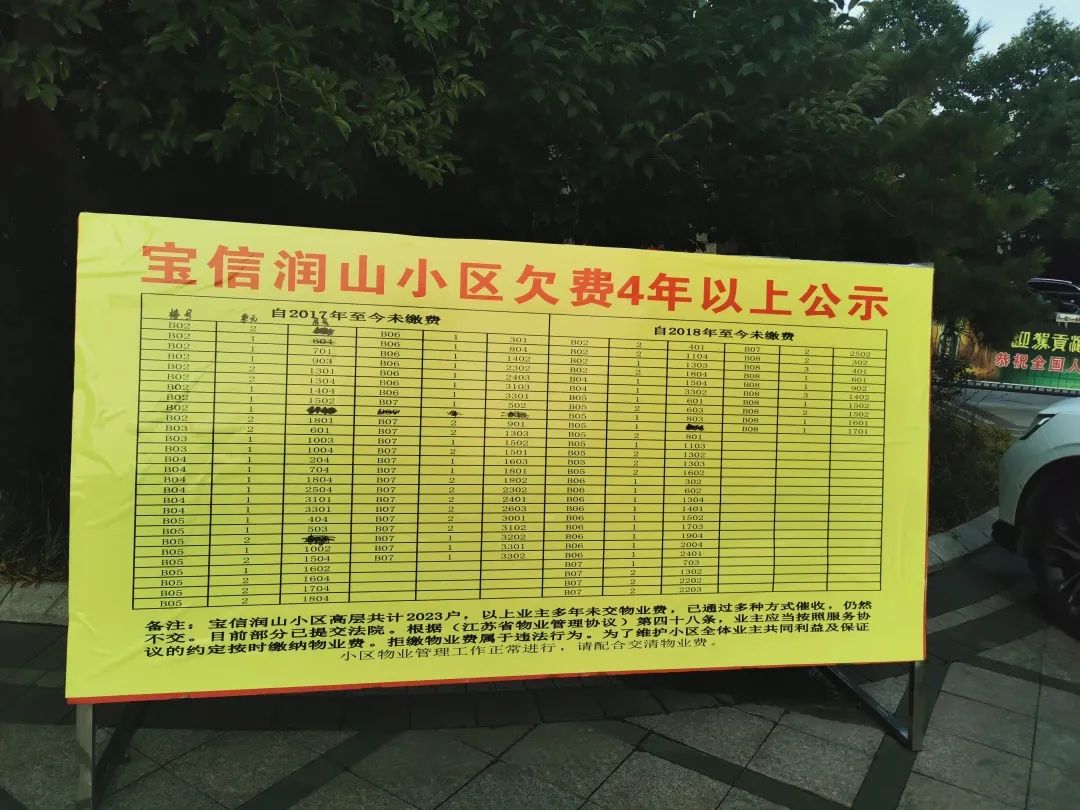 宝信润山小区欠费4年以上公示
自2017年至今未缴费 自2018年至今未缴费
楼号 单元 房号
B02 2 B06 1 301 B02 2 401 B07 2 2502
B02 1 604 B06 1 804 B02 2 1104 B08 2 302
B02 1 701 B06 1 1402 B02 1 1303 B08 3 401
B02 1 903 B06 1 2302 B02 2 1804 B08 1 601
B02 2 1301 B06 1 2403 B04 1 1504 B08 1 902
B02 2 1304 B06 1 3103 B04 1 3302 B08 3 1402
B02 1 1404 B06 1 3301 B05 1 601 B08 1 1502
B02 1 1502 B07 1 502 B05 2 603 B08 2 1502
B02 1 B05 1 803 B08 1 1601
B02 2 1801 B07 2 901 B05 1 B08 1 1701
B03 2 601 B07 2 1303 B05 2 801
B03 1 1003 B07 1 1502 B05 1 1103
B03 1 1004 B07 2 1501 B05 2 1302
B04 1 204 B07 1 1603 B05 2 1303
B04 1 704 B07 1 1801 B05 2 1602
B04 1 1804 B07 2 1802 B06 1 302
B04 1 2504 B07 2 2302 B06 1 602
B04 1 3101 B07 2 2401 B06 1 1304
B04 1 3301 B07 2 2603 B06 1 1401
B05 1 404 B07 2 3001 B06 1 1502
B05 1 503 B07 2 3102 B06 1 1703
B05 2 B07 1 3202 B06 1 1904
B05 1 1002 B07 1 3301 B06 1 2004
B05 2 1504 B07 1 3302 B06 1 2401
B05 1 1602 B07 1 703
B05 2 1604 B07 2 1302
B05 2 1704 B07 2 2202
B05 2 1804 B07 2 2203
备注：宝信润山小区高层共计2023户，以上业主多年未交物业费，已通过多种方式催收，仍然
不交。目前部分已提交法院。根据（江苏省物业管理协议）第四十八条，业主应当按照服务协
议的约定按时缴纳物业费。拒缴物业费属于违法行为。为了维护小区全体业主共同利益及保证
小区物业管理工作正常进行，请配合交清物业费。
恭祝全国人